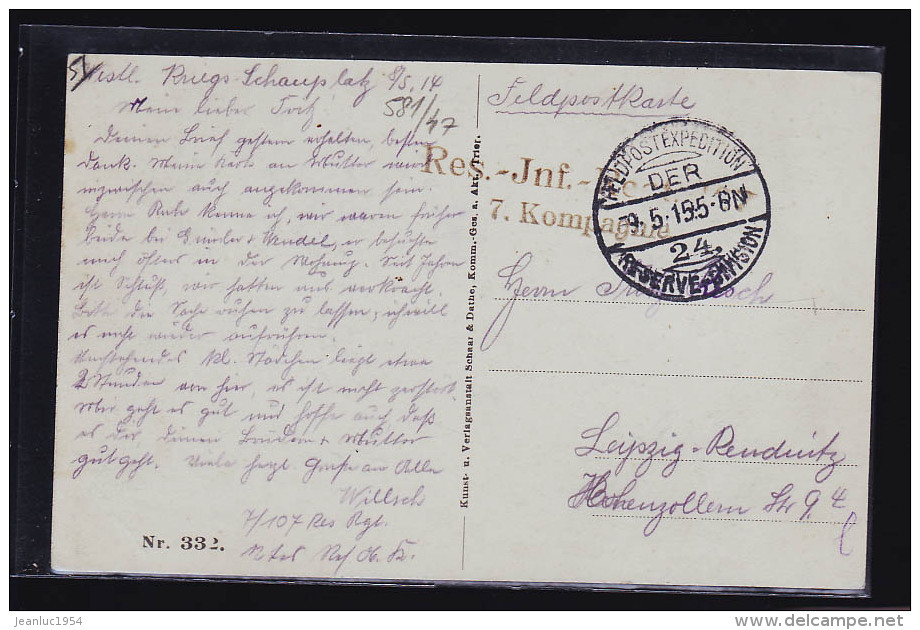 Westl. Kriegs-Schauplatz 8/5. 14
581/47
Mein lieber
Deinen Brief gestern erhalten, besten
Dank. Meine Karte an Mutter wird
inzwischen auch angekommen sein.
Herrn kenne ich, wir waren früher
beide bei & er besuchte
mich öfters in der Wohnung. Seit Jahren
ist Schluß, wir hatten uns verkracht.
Bitte die Sache ruhen zu lassen, ich will
es nicht wieder aufrühren.
Umstehendes kl. Städtchen liegt etwa
2 Stunden von hier, es ist nicht zerstört.
Mir geht es gut und hoffe auch, daß
es Dir Deinen Brüdern & Mutter
gut geht. Viele herzl. Grüße an Alle
Willsch
7/107 Res Rgt.
Nr. 332.
Kunst- u. Verlagsanstalt Schaar & Dathe, Komm.-Ges. a. Akt., Trier.
Feldpostkarte
Res.-Jnf.-
7. Kompagnie
FELDPOSTEXPEDITION
DER
9.5.15 5-6N
24.
RESERVE-DIVISION
Herrn
Leipzig-Reudnitz
Hohenzollern Str 9, 4
jeanluc1954
delcampe.net